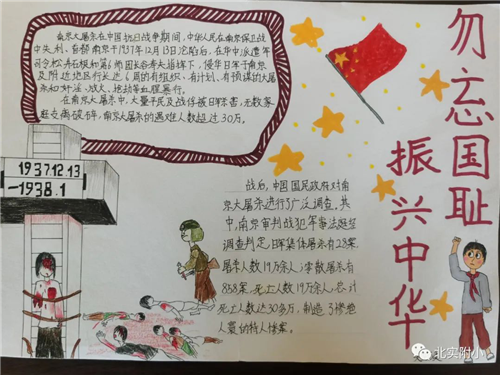 南京大屠杀在中国抗日战争期间,中华人民在南京保卫战
中失利、首都南京于1937年12月13日沦陷后,在华中派遣军
司令松井石根和第6师团长谷寿夫指挥下,侵华日军于南京
及附近地区行长达6周的有组织、有计划、有预谋的大屠
杀和奸淫、放火、抢劫等血腥暴行。
在南京大屠杀中,大量平民及战俘被日军杀害,无数家
庭支离破碎,南京大屠杀的遇难人数超过30万。
勿忘国耻
振兴中华
1937.12.13
-1938.1
战后,中国国民政府对南
京大屠杀进行了广泛调查。其
中,南京审判战犯军事法庭经
调查判定,日军集体屠杀有28案,
屠杀人数19万余人;零散屠杀有
858案,死亡人数15万余人,总计
死亡人数达30多万,制造了惨绝
人寰的特大惨案。
北实附小